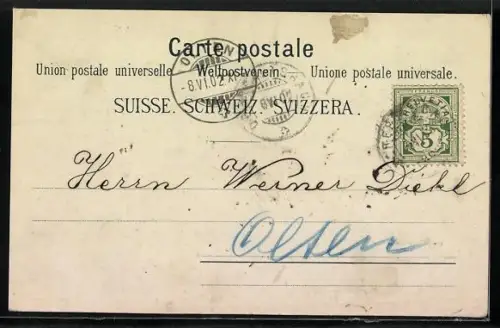 Carte postale
Union postale universelle. Weltpostverein. Unione postale universale.
SUISSE. SCHWEIZ. SVIZZERA.
OLTEN
8.VI.02.XI
HELVETIA
5
Herrn Werner Diekl
Olten